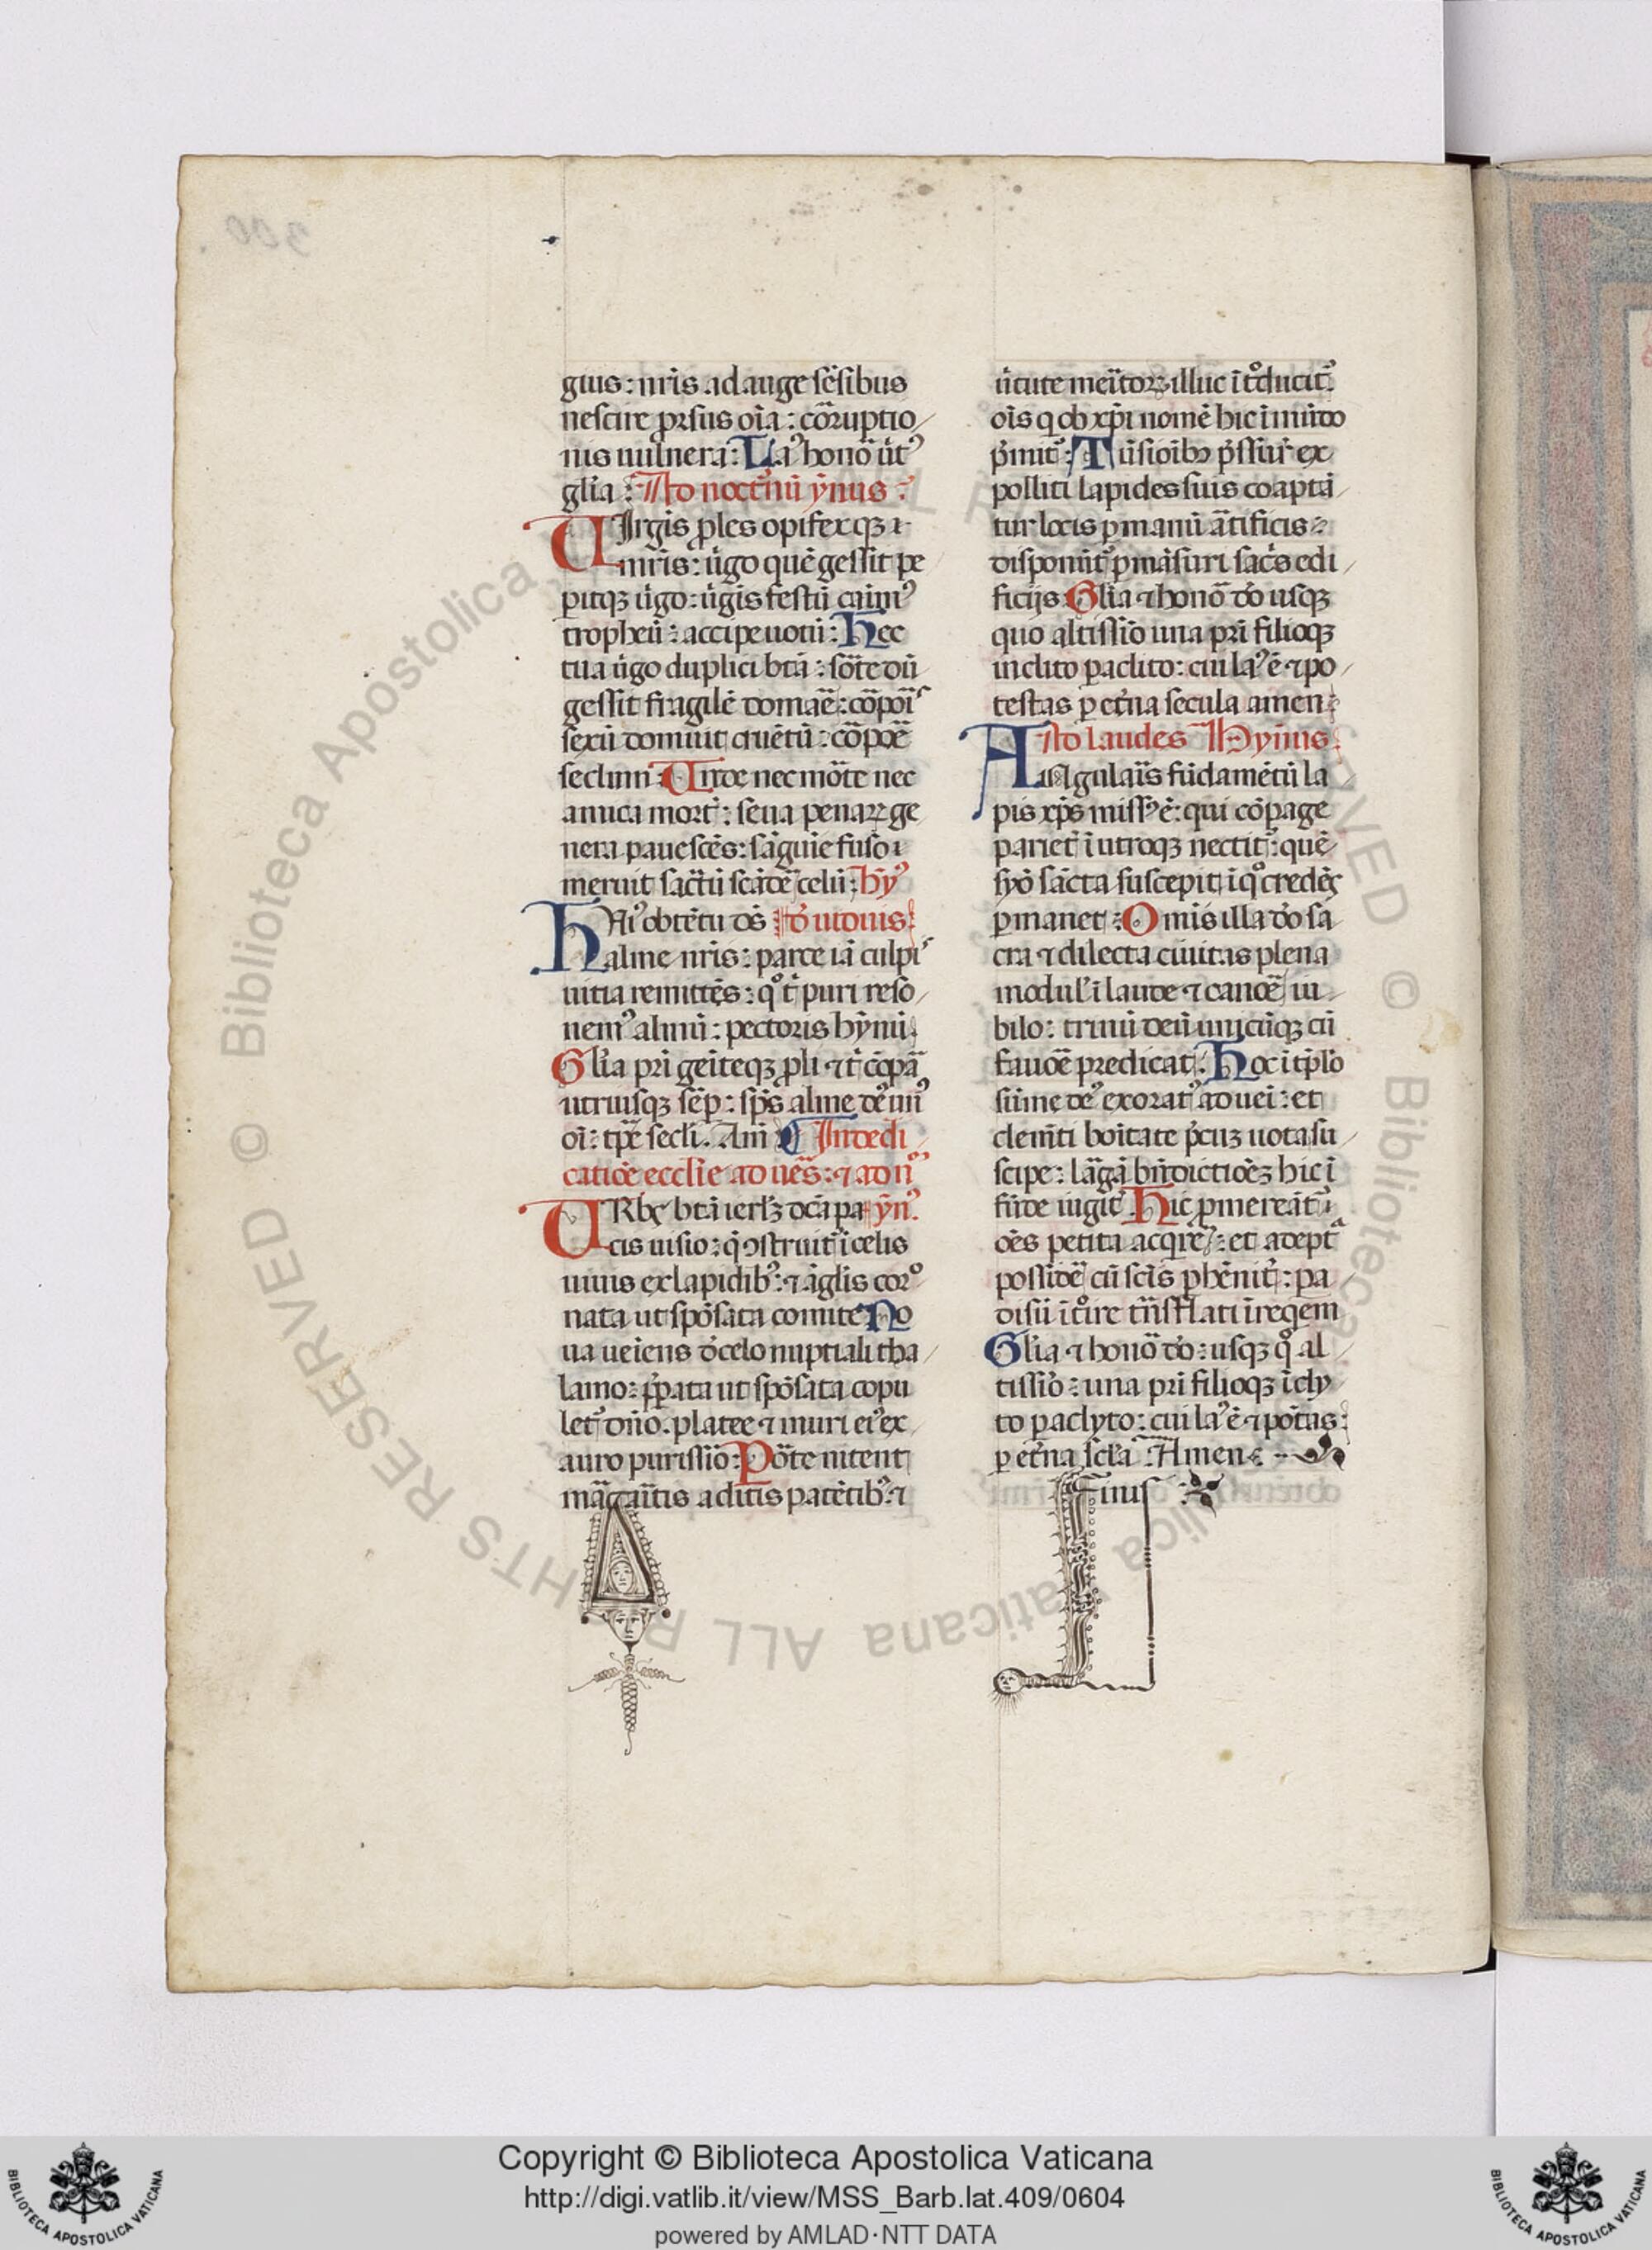 gius: nr̄is adauge sēsibus
nescire ꝓrsus oīa: coruptio
nis uulnera: Laꝰ honō v̄tꝰ
gl̄ia: Ad noct̄nū ȳnus
UIrgīs ꝓles opifexqꝫ
mr̄is: v̄go quē gessit pe
ꝑitqꝫ v̄go: v̄gīs festū canimꝰ
tropheū: accipe uotū: Hec
tua v̄go duplici btā: sorte dū
gessit fragilē domāe: corpoīs
sexū domuit cruētū: corpoē
seclum Unde nec morte nec
amica mort̄: seua penaꝝ ge
nera pauescēs: sāguīe fuso
meruit sacrū scādē celū: Hyꝰ
HUiꝰ obtētu dē ds̄ uiduis
alme nr̄is: parce iā culpīs
uitia remittēs: qͦ t̄ puri reso
nemꝰ almū: pectoris hȳmū
Gl̄ia pr̄i geīteqꝫ ꝓli ⁊ t̄ cōpā
utriusqꝫ sēp: sp̄s alme deꝰ unꝰ
oī: tp̄e secli. Am̄ In dedi
catiōe ecclīe ad ues̄: ⁊ ad nͦ
URbs btā ierlꝫ dcā pa ȳnꝰ
cis uisio: q̄ ꝯstruit̄ ī celis
uiuis ex lapidibꝰ: ⁊ āglis coro
nata ut spōsata comite No
ua ueīens ē celo nuptiali tha
lamo: p̄parata ut spōsata copu
letꝰ dn̄o. platee ⁊ muri eiꝰ ex
auro purissīo: Porte nitent
margaritis aditis patētibꝰ: ⁊
v̄tute meritoꝝ illuc ītͦducitꝰ
oīs q ob xp̄i nomē hic ī mūdo
p̄mitꝰ: Tūsiōibꝰ p̄ssurī ex
politi lapides suis coaptā
tur locis ꝑ manū artificis
disponūtꝰ ꝑmāsuri sac̄s edi
ficijs Gl̄ia ⁊ honō dō usqꝫ
quo altissīo una pr̄i filioqꝫ
inclito paclito: cui laꝰ ē ⁊ po
testas ꝑ et̄na secula amen
Ad laudes Hymus
ANgularīs fūdamētū la
pis xp̄s missꝰ ē: qui cōpage
pariet̄ ī utroqꝫ nectitꝰ: quē
syō sācta suscepit ī qͦ credēs
ꝑmanet: Omīs illa dō sa
cra ⁊ dilecta ciuitas plena
modulī laude ⁊ canoē iu
bilo: trinū deū unicūqꝫ cū
fauoē predicat. Hoc ī tp̄lo
sūme deꝰ exoratꝰ adueī: et
clemēti bonitate p̄cuꝫ uota su
scipe: largā bn̄dictiōeꝫ hic ī
fūde iugitꝰ Hic ꝓmereātꝰ
oēs petita acqrē: et adepta
possidē cū sc̄is perhēnitꝰ: pa
disū ītͦire trāsslati ī reqem
Gl̄ia ⁊ honō dō: usqꝫ qͦ al
tissīo: una pr̄i filioqꝫ īcly
to paclyto: cui laꝰ ē ⁊ pōtas:
ꝑ et̄na scl̄a. Amen
Finis
Copyright © Biblioteca Apostolica Vaticana
http://digi.vatlib.it/view/MSS_Barb.lat.409/0604
powered by AMLAD·NTT DATA
BIBLIOTECA APOSTOLICA VATICANA
BIBLIOTECA APOSTOLICA VATICANA
© Biblioteca Apostolica Vaticana ALL RIGHTS RESERVED